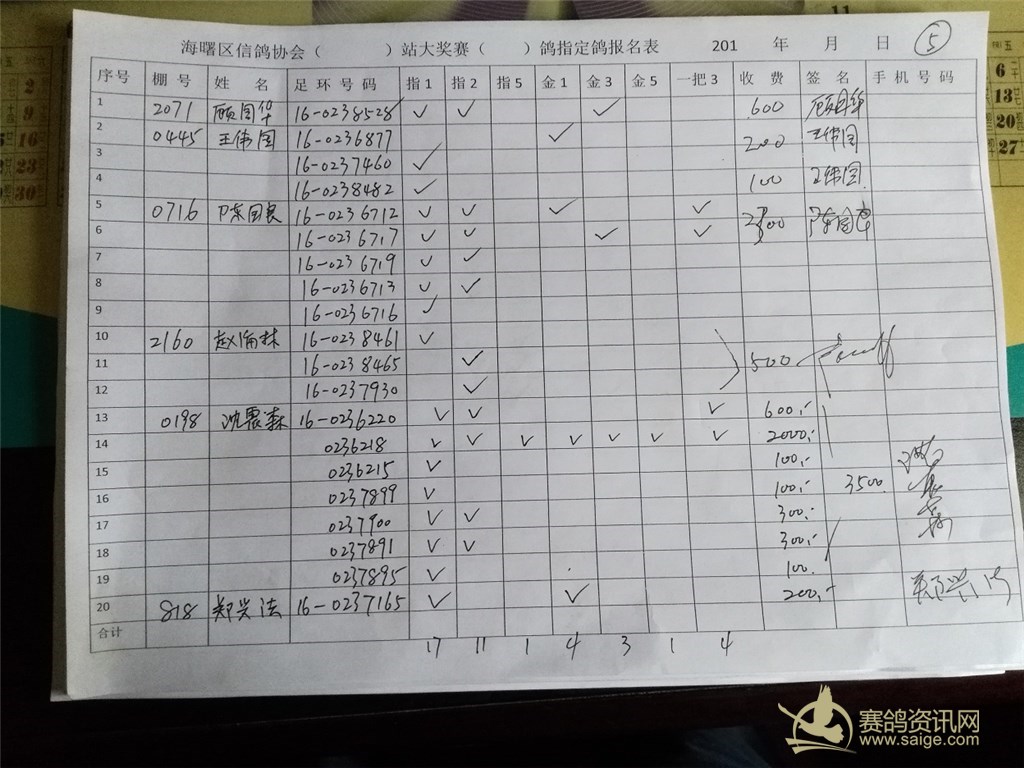 海曙区信鸽协会（ ）站大奖赛（ ）鸽指定鸽报名表 201 年 月 日 ⑤
序号 棚号 姓名 足环号码 指1 指2 指5 金1 金3 金5 一把3 收费 签名 手机号码
1 2071 顾国华 16-0238528 ✓ ✓ ✓ 600 顾国华
2 0445 王伟国 16-0236877 ✓ 200 王伟国
3 16-0237460 ✓
4 16-0238482 ✓ 100 王伟国
5 0716 陈国良 16-0236712 ✓ ✓ ✓ ✓
6 16-0236717 ✓ ✓ ✓ ✓
7 16-0236719 ✓ ✓
8 16-0236713 ✓ ✓
9 16-0236716 ✓
10 2160 16-0238461 ✓
11 16-0238465 ✓ 500
12 16-0237930 ✓
13 0198 沈震森 16-0236220 ✓ ✓ ✓ 600,-
14 0236218 ✓ ✓ ✓ ✓ ✓ ✓ ✓ 2000,-
15 0236215 ✓ 100,-
16 0237899 ✓ 100,- 3500
17 0237900 ✓ ✓ 300,-
18 0237891 ✓ ✓ 300,-
19 0237895 ✓ 100.
20 818 郑兴法 16-0237165 ✓ ✓ 200,-
合计 17 11 1 4 3 1 4
11
五
2
9
16
23
30
五
6
13
20
27
赛鸽资讯网
www.saige.com